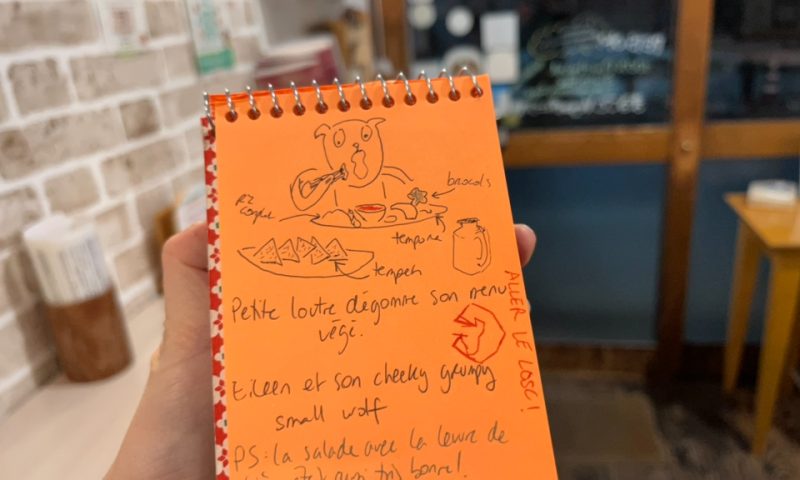 brocolis
riz
complet
tempura
tempeh
Petite loutre dégomme son menu
végé.
ALLER LE LOSC!
Eileen et son cheeky grumpy
small wolf
PS: la salade avec la levure de
bonne!